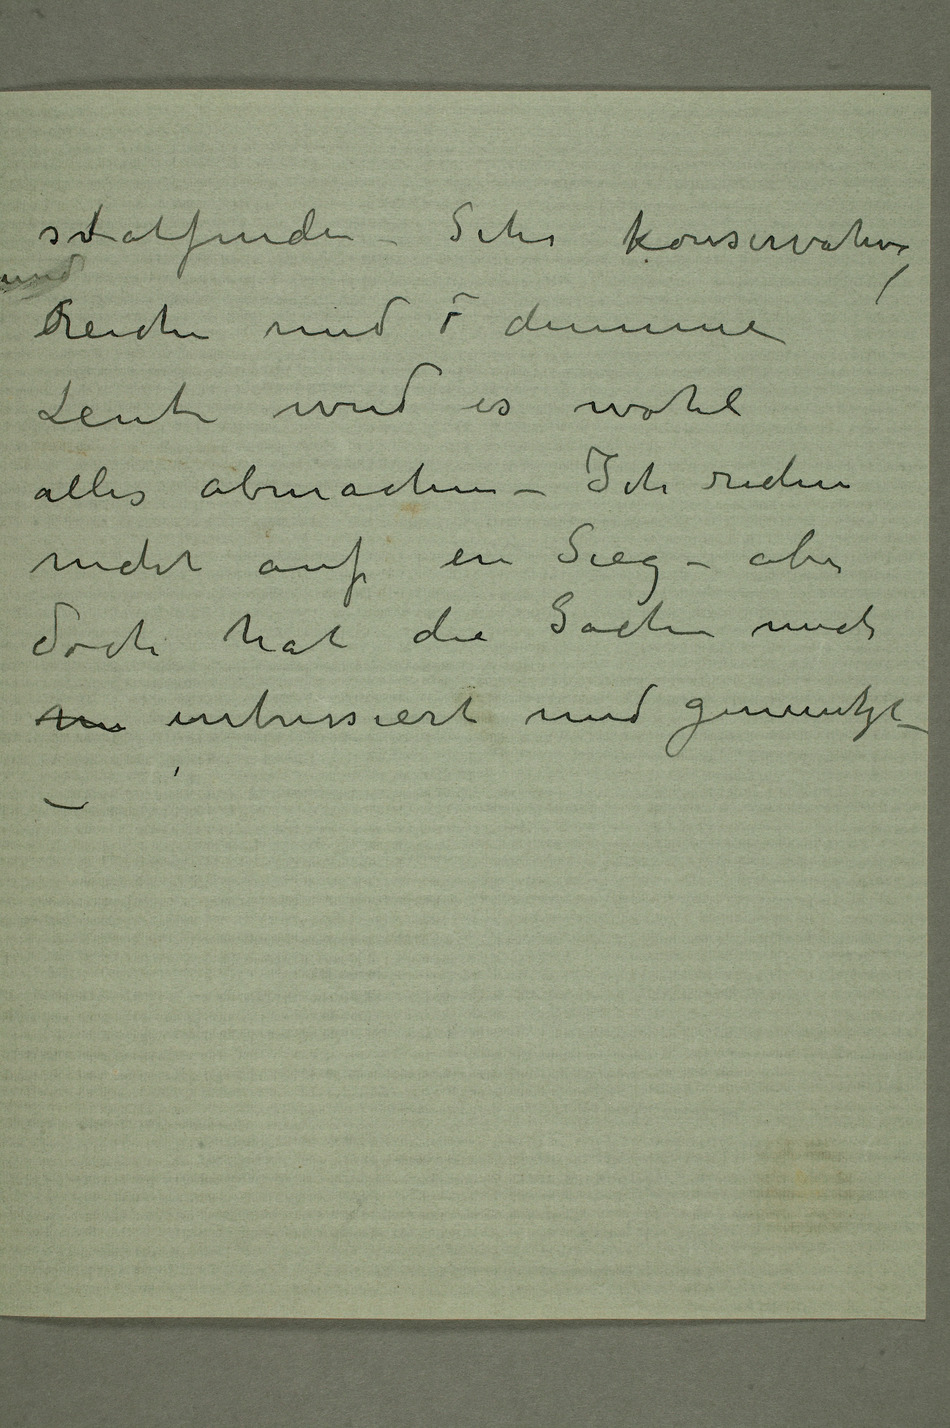 statfinden – Sehr konservative,
und
Reiche und o dumme
Leute wird es wohl
alles abmachen – Ich rechne
nicht auf ein Sieg – aber
doch hat die Sache mich
intressiert und genützt –
–